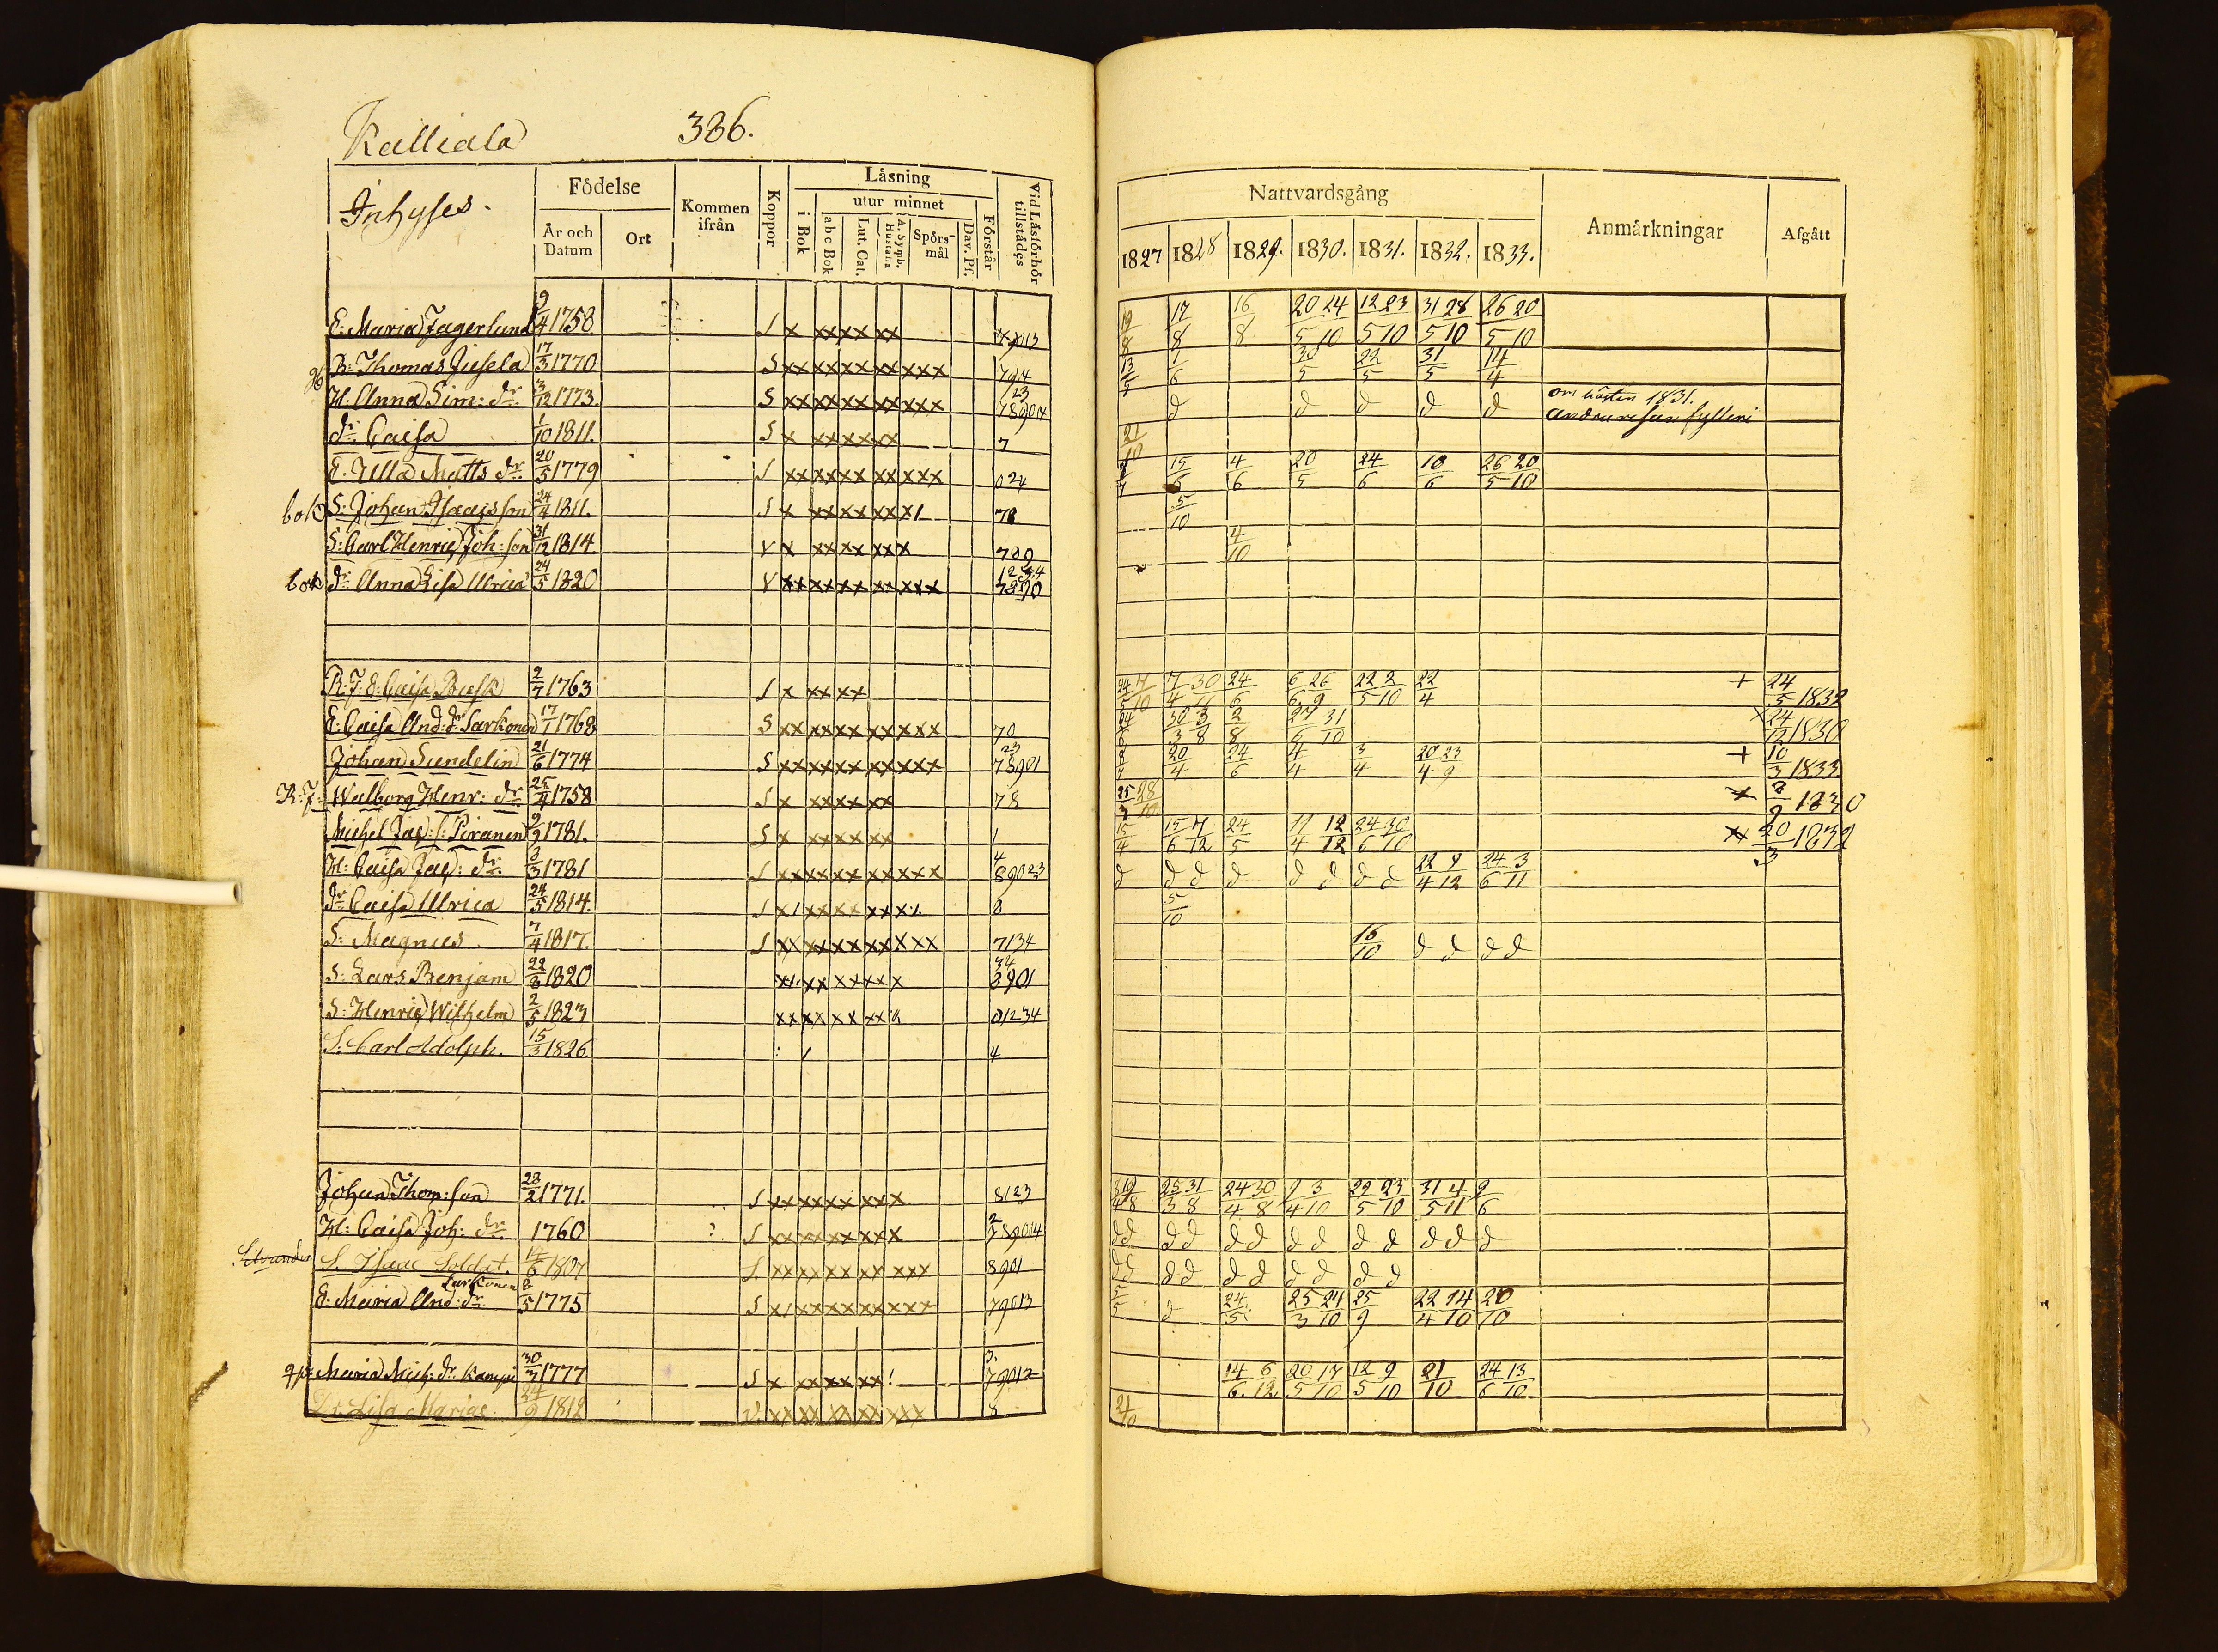 Kalliala 386.
Inhyses.
Födelse
År och Datum
Ort
Kommen ifrån
Koppor
Låsning
i Bok
utur minnet
a b c Bok
Lut. Cat.
A. Symb. Hustafla
Spörsmål
Dav. Ps.
Förstår
Vid Läsförhör tillstädes
E: Maria Jagerlund 9/4 1758 S x xx xx xx
R: Thomas 17/3 1770 S xx xx xx xx xxx 794
H: Anna Sim: dr 3/12 1773. S xx xx xx xx xxx
dr Caisa 1/10 1811. S x xx xx xx 7
E. Ulla Matts dr 20/5 1779 S xx xx xx xx xxx 024
bok S: Johan Isaacsson 24/4 1811. S x xx xx xx x/ 78
S: Carl Henric Joh: son 31/12 1814 V x xx xx xx x 789
bok dr Anna Lisa Ulrica 24/5 1820 V xx xx xx xx xxx
R: F: E: Caisa Rusk 2/7 1763 S x xx xx
E: Caisa And: dr Sarkonen 17/1 1768 S xx xx xx xx xxx 70
Johan Sundelin 21/6 1774 S xx xx xx xx xxx 23 78901
R: F: Walborg Henr: dr 25/4 1758 S x xx xx xx 78
Michel Jac: s: Piranen 9/9 1781. S x xx xx xx 1
H: Caisa Jac: dr 3/3 1781 S xx xx xx xx xxx 4 89023
dr Caisa Ulrica 24/5 1814. S x/ xx xx xx x/. 8
S: Magnus 7/4 1817. S xx xx xx xx xxx 7134
S: Lars Benjam 22/8 1820 x/. xx xx xx x 34 8901
S: Henric Wilhelm 2/5 1823 xx xx xx xx 01234
S: Carl Adolph. 15/3 1826 / 4
Johan Thom: son 28/2 1771. S xx xx xx xx x 8123
H: Caisa Joh: dr 1760 ? S xx xx xx xx x
S. Isaac Soldat. 14/6 1807 S. xx xx xx xx xxx 8901
Sarkonen
E. Maria And: dr 8/5 1775 S x/ xx xx xx xxx 79013
Maria Mich: dr Kampi 30/3 1777 S x xx xx xx ! 79012
Dr Lisa Mariae. 24/9 1812 V. xx xx xx xx xxx 8
Nattvardsgång
Anmärkningar
Afgått
1827 1828 1829. 1830. 1831. 1832. 1833.
19/8 17/8 16/8 20/5 24/10 12/5 23/10 31/5 28/10 26/5 20/10
13/5 1/6 30/5 22/5 31/5 14/4
d d d d d om hösten 1831.
21/10
15/6 4/6 20/5 24/6 10/6 26/5 20/10
5/10
4/10
24/5 7/10 7/4 30/11 24/6 6/6 26/9 22/5 2/10 22/4 + 24/5 1832
24/6 30/3 3/8 2/8 27/6 31/10 x 24/12 1830
20/4 24/6 4/4 3/4 20/4 23/9 + 10/3 1833
25/3 28/10 x 8/9 1830
15/4 15/6 7/12 24/5 11/4 12/12 24/6 30/10 x 20/3 1832
d d d d d d d d 22/4 9/12 24/6 3/11
5/10
16/10 d d d d
8/4 19/8 25/3 31/8 24/4 30/8 9/4 3/10 29/5 23/10 31/5 4/11 9/6
d d d d d d d d d d d d d
d d d d d d d d d d
5/5 d 24/5 25/3 24/10 25/9 22/4 14/10 20/10
14/6 6/12 20/5 17/10 12/5 9/10 21/10 24/6 13/10
21/10